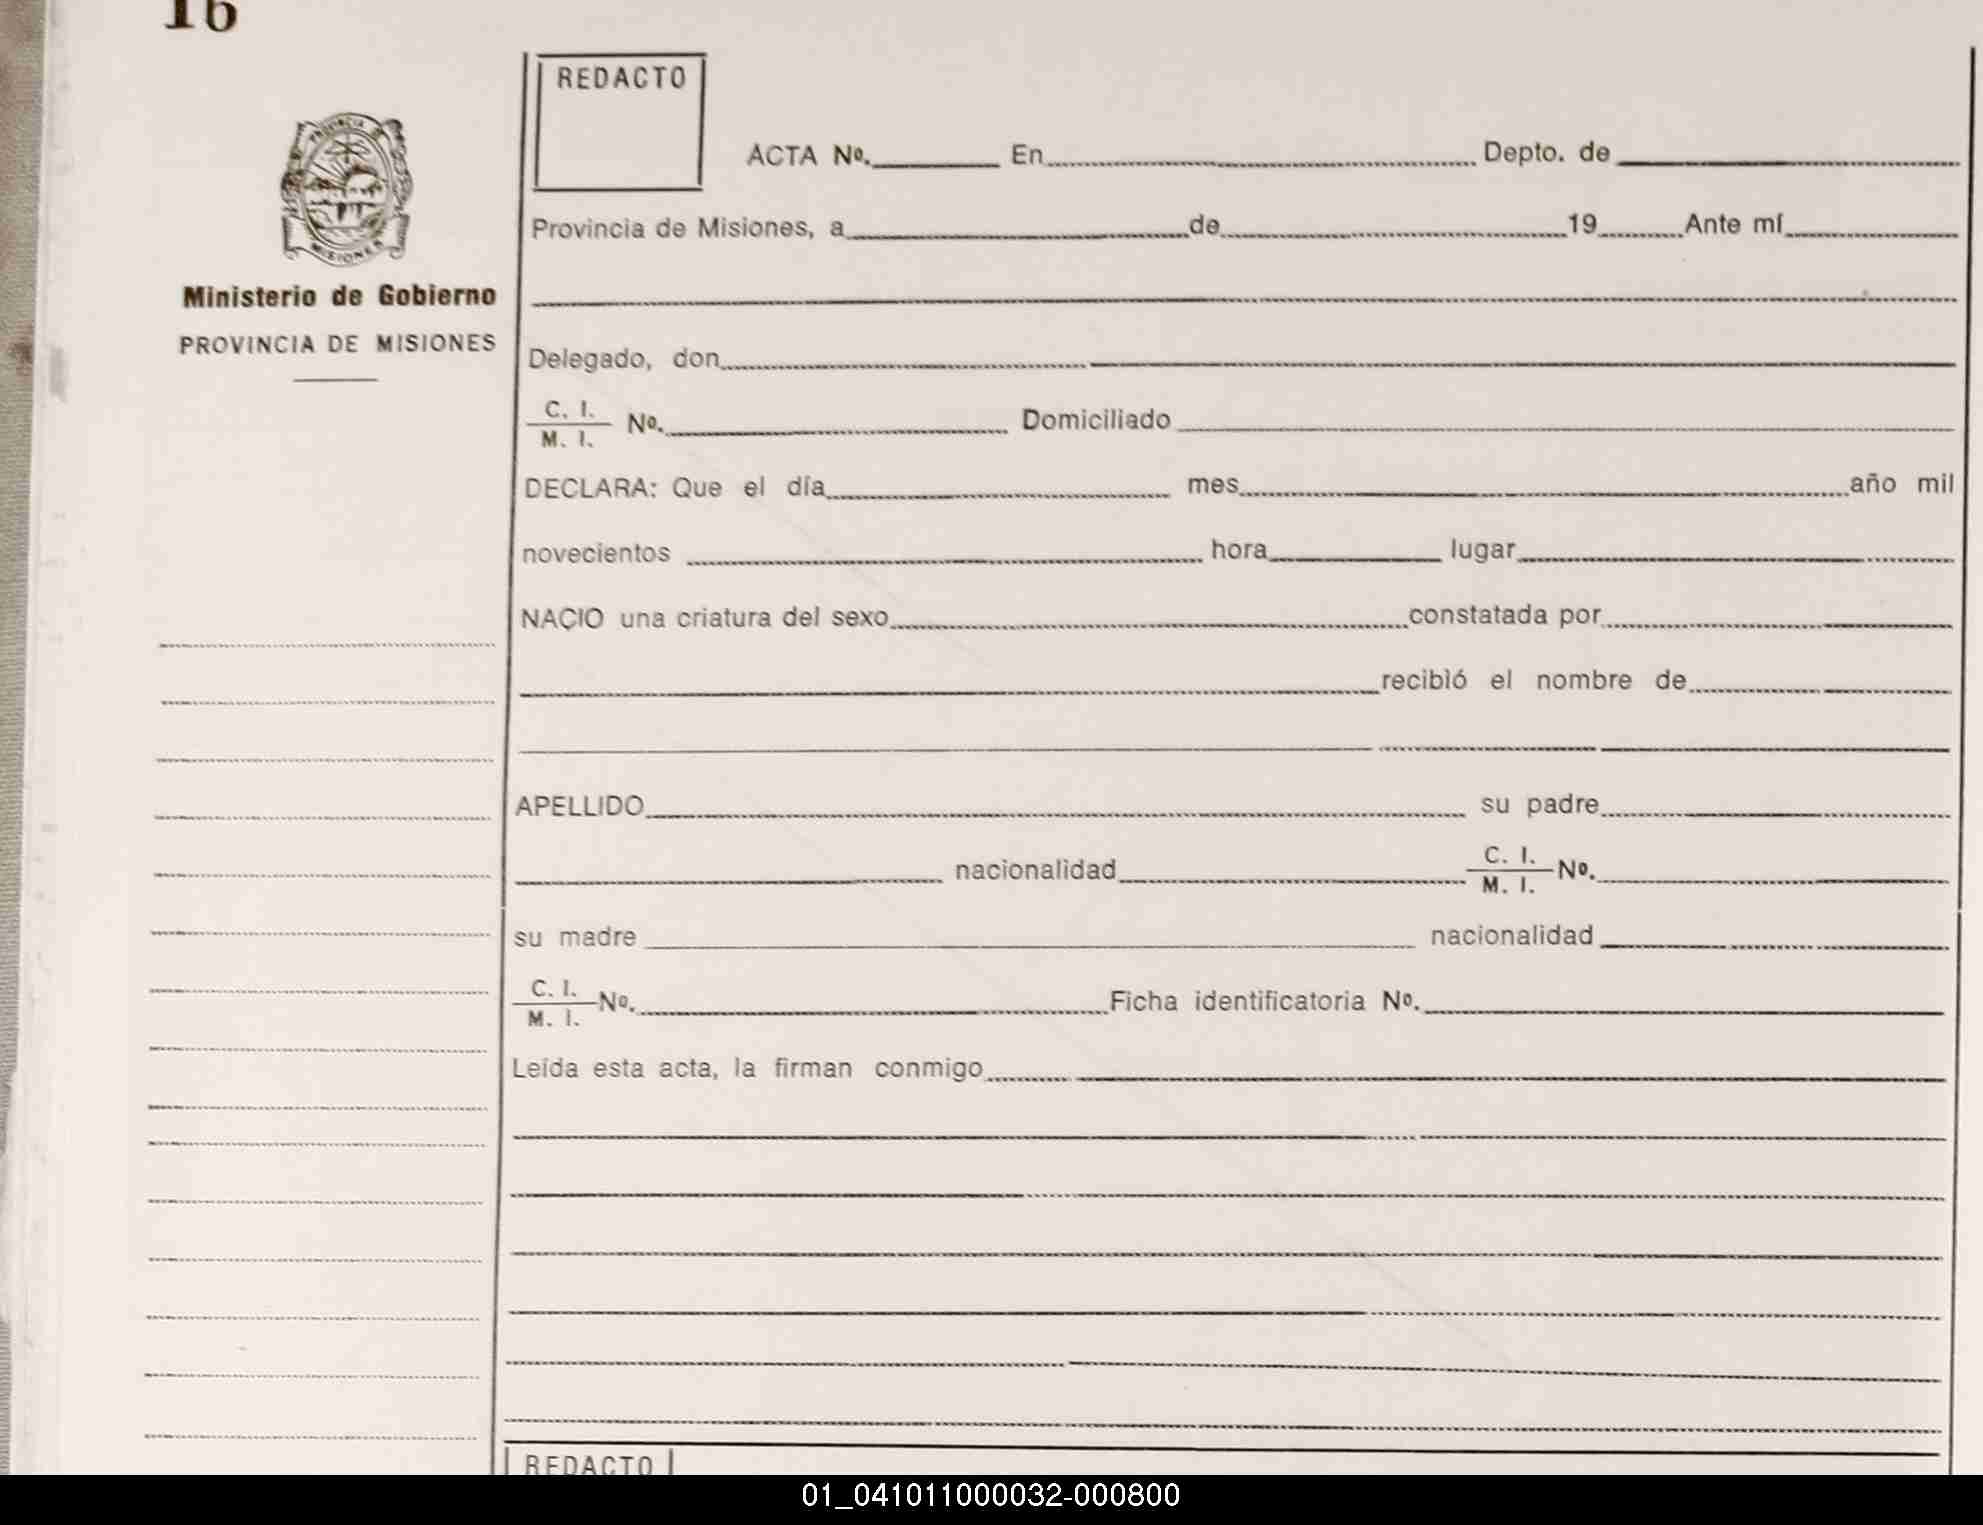 16
REDACTO
ACTA Nº. En Depto. de
Provincia de Misiones, a de 19 Ante mí
PROVINCIA DE
MISIONES
Ministerio de Gobierno
PROVINCIA DE MISIONES
Delegado, don
C. I.
M. I. Nº. Domiciliado
DECLARA: Que el día mes año mil
novecientos hora lugar
NACIO una criatura del sexo constatada por
recibió el nombre de
APELLIDO su padre
nacionalidad C. I.
M. I. Nº.
su madre nacionalidad
C. I.
M. I. Nº. Ficha identificatoria Nº.
Leída esta acta, la firman conmigo
REDACTO
01_041011000032-000800